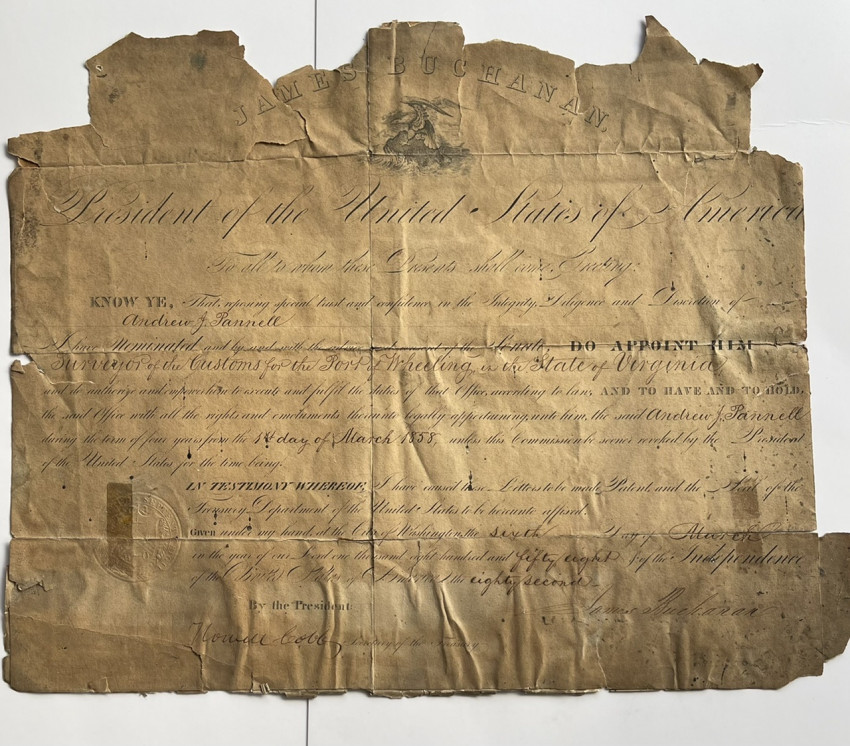 JAMES BUCHANAN,
President of the United States of America
To all to whom these Presents shall come, Greeting:
KNOW YE, That reposing special trust and confidence in the Integrity, Diligence and Discretion of
Andrew J. Pannell
I have Nominated and by and with the advice and consent of the Senate, DO APPOINT HIM
Surveyor of the Customs for the Port of Wheeling, in the State of Virginia,
and do authorize and empower him to execute and fulfil the duties of that Office, according to law; AND TO HAVE AND TO HOLD,
the said Office with all the rights and emoluments thereunto legally appertaining, unto him, the said Andrew J. Pannell
during the term of four years from the 1st day of March 1858, unless this Commission be sooner revoked by the President
of the United States for the time being.
IN TESTIMONY WHEREOF, I have caused these Letters to be made Patent, and the Seal of the
Treasury Department of the United States to be hereunto affixed.
Given under my hand, at the City of Washington, the sixth day of March
in the year of our Lord one thousand eight hundred and fifty eight, & of the Independence
of the United States of America the eighty second.
By the President: James Buchanan
Howell Cobb Secretary of the Treasury